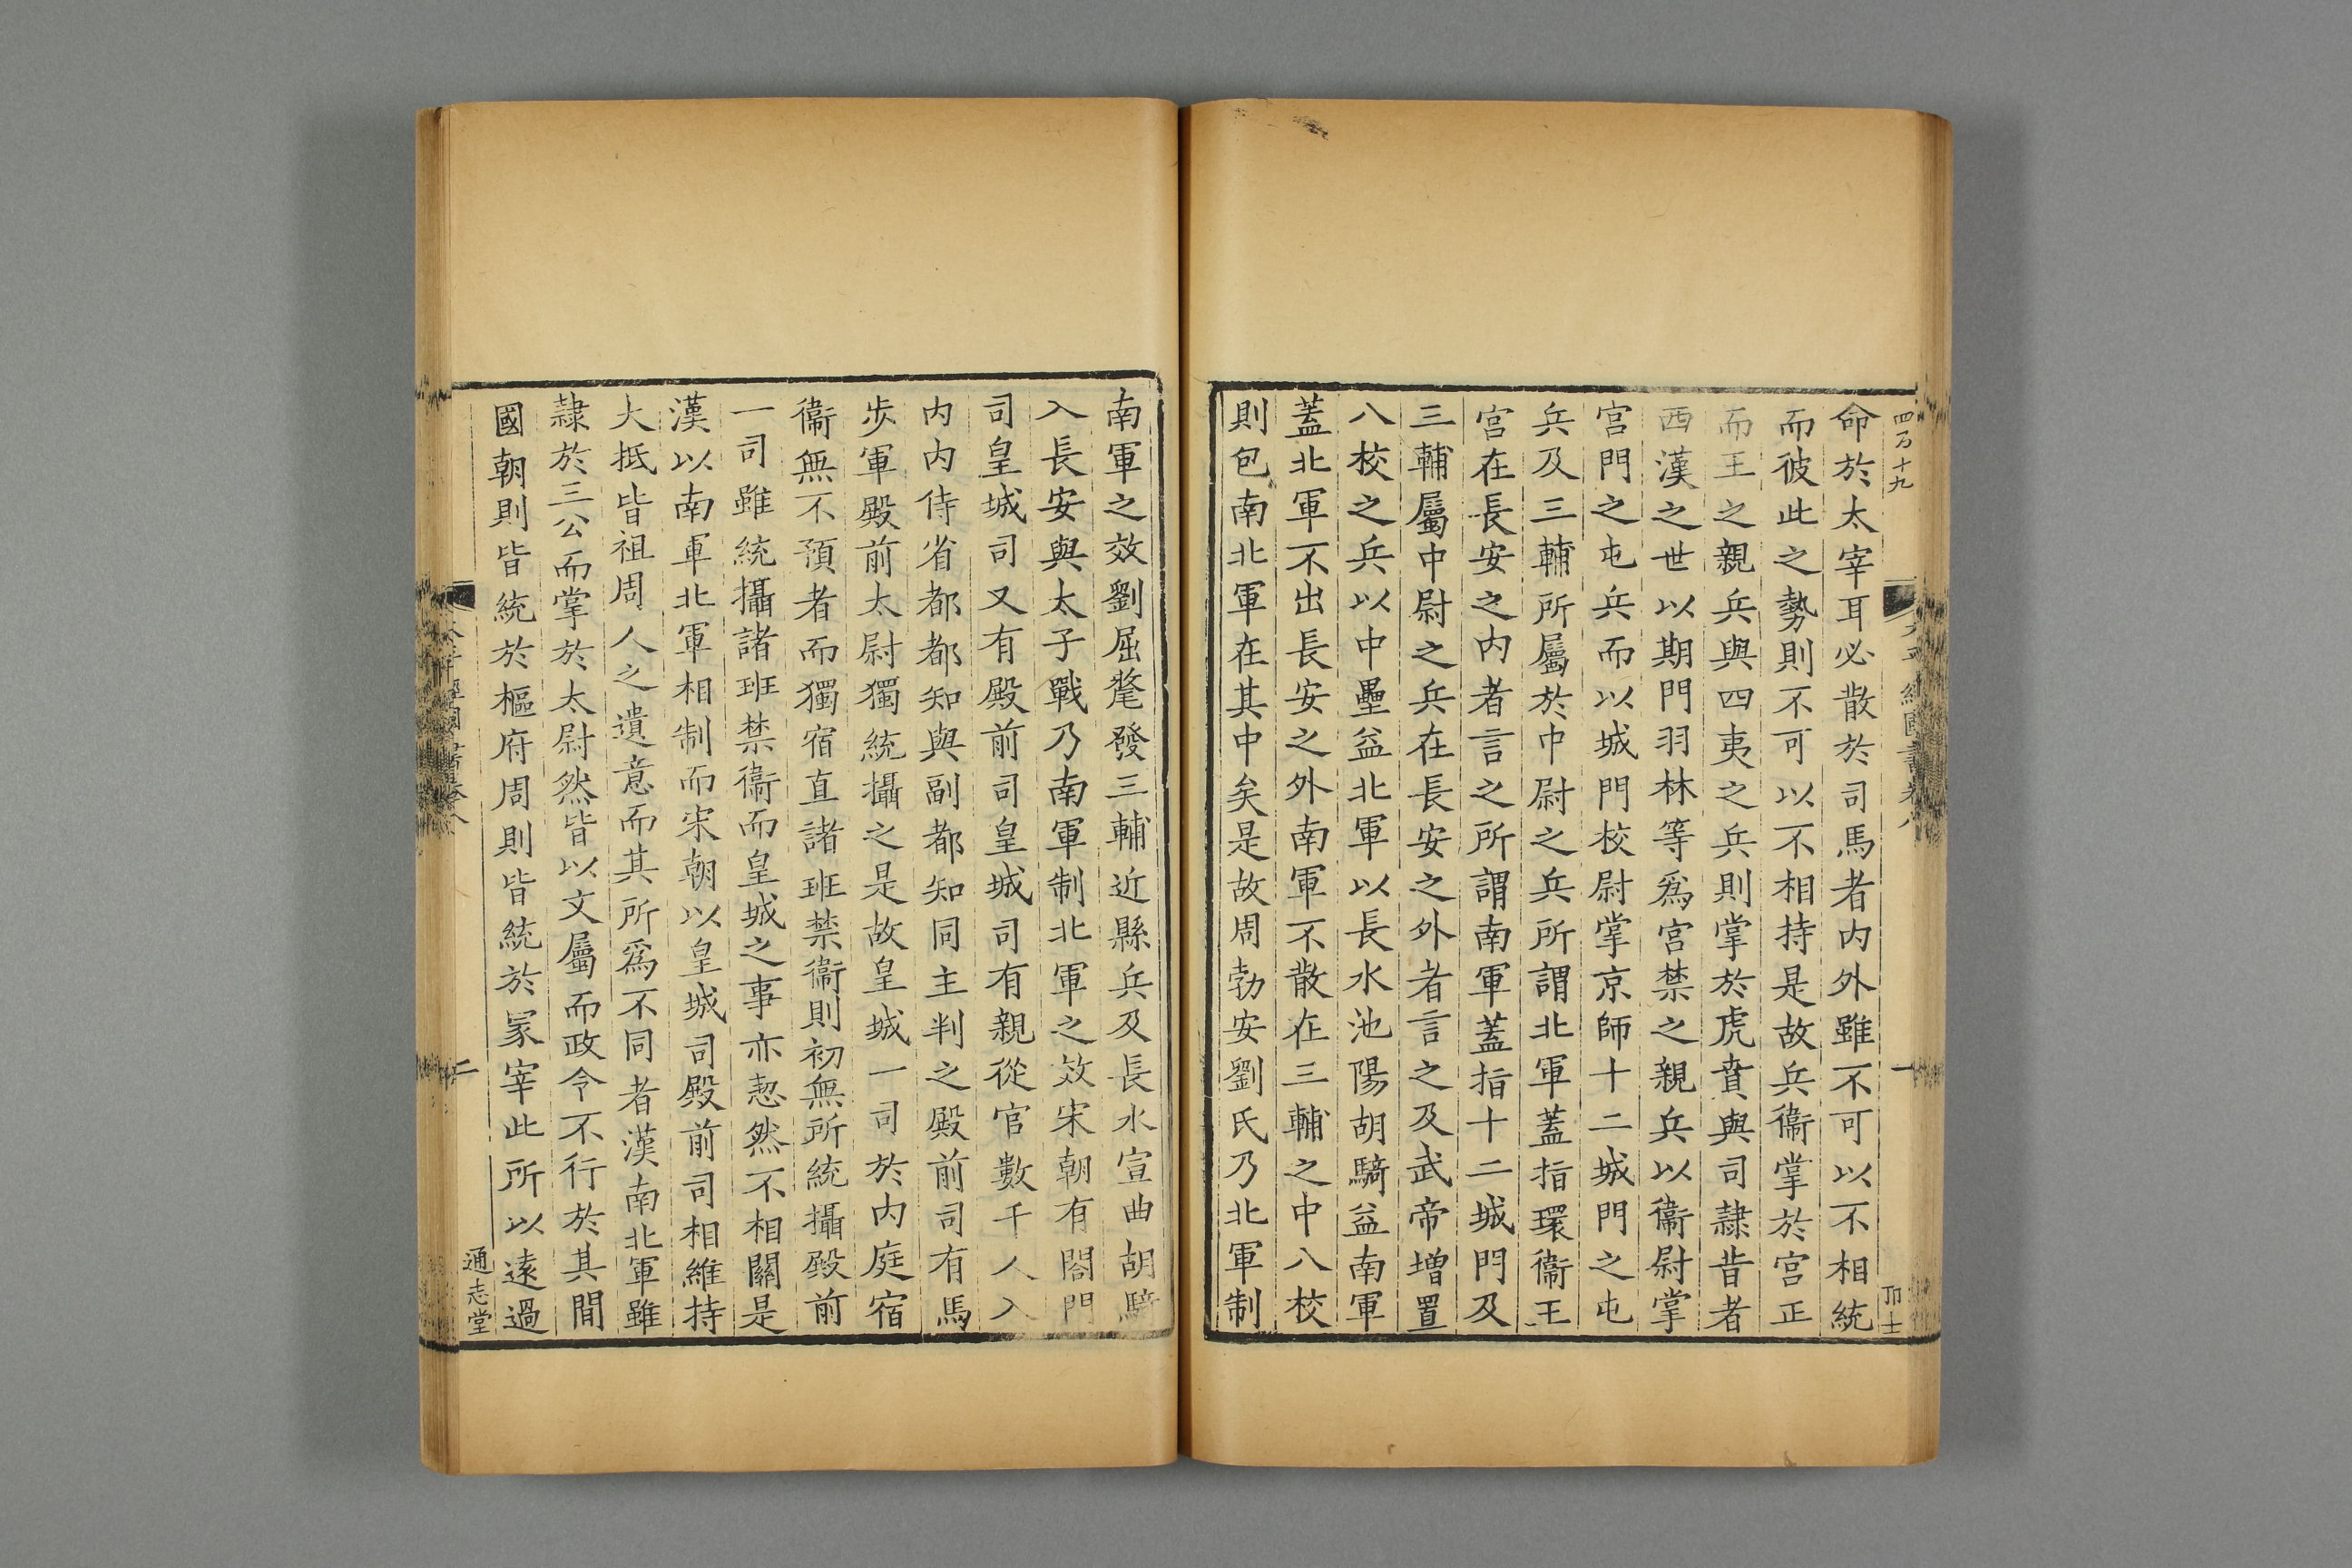 四万十九
命於太宰耳必散於司馬者内外雖不可以不相統
而彼此之勢則不可以不相持是故兵衞掌於宫正
而王之親兵與四夷之兵則掌於虎賁與司隷昔者
西漢之世以期門羽林等爲宫禁之親兵以衞尉掌
宫門之屯兵而以城門校尉掌京師十二城門之屯
兵及三輔所屬於中尉之兵所謂北軍蓋指環衞王
宫在長安之内者言之所謂南軍蓋指十二城門及
三輔屬中尉之兵在長安之外者言之及武帝增置
八校之兵以中壘益北軍以長水池陽胡騎益南軍
蓋北軍不出長安之外南軍不散在三輔之中八校
則包南北軍在其中矣是故周勃安劉氏乃北軍制
南軍之效劉屈氂發三輔近縣兵及長水宣曲胡騎
入長安與太子戰乃南軍制北軍之效宋朝有閤門
司皇城司又有殿前司皇城司有親從官數千人入
内内侍省都都知與副都知同主判之殿前司有馬
步軍殿前太尉獨統攝之是故皇城一司於内庭宿
衞無不預者而獨宿直諸班禁衞則初無所統攝殿前
一司雖統攝諸班禁衞而皇城之事亦恝然不相關是
漢以南軍北軍相制而宋朝以皇城司殿前司相維持
大抵皆祖周人之遺意而其所爲不同者漢南北軍雖
隷於三公而掌於太尉然皆以文屬而政令不行於其間
國朝則皆統於樞府周則皆統於冢宰此所以遠過
二
通志堂